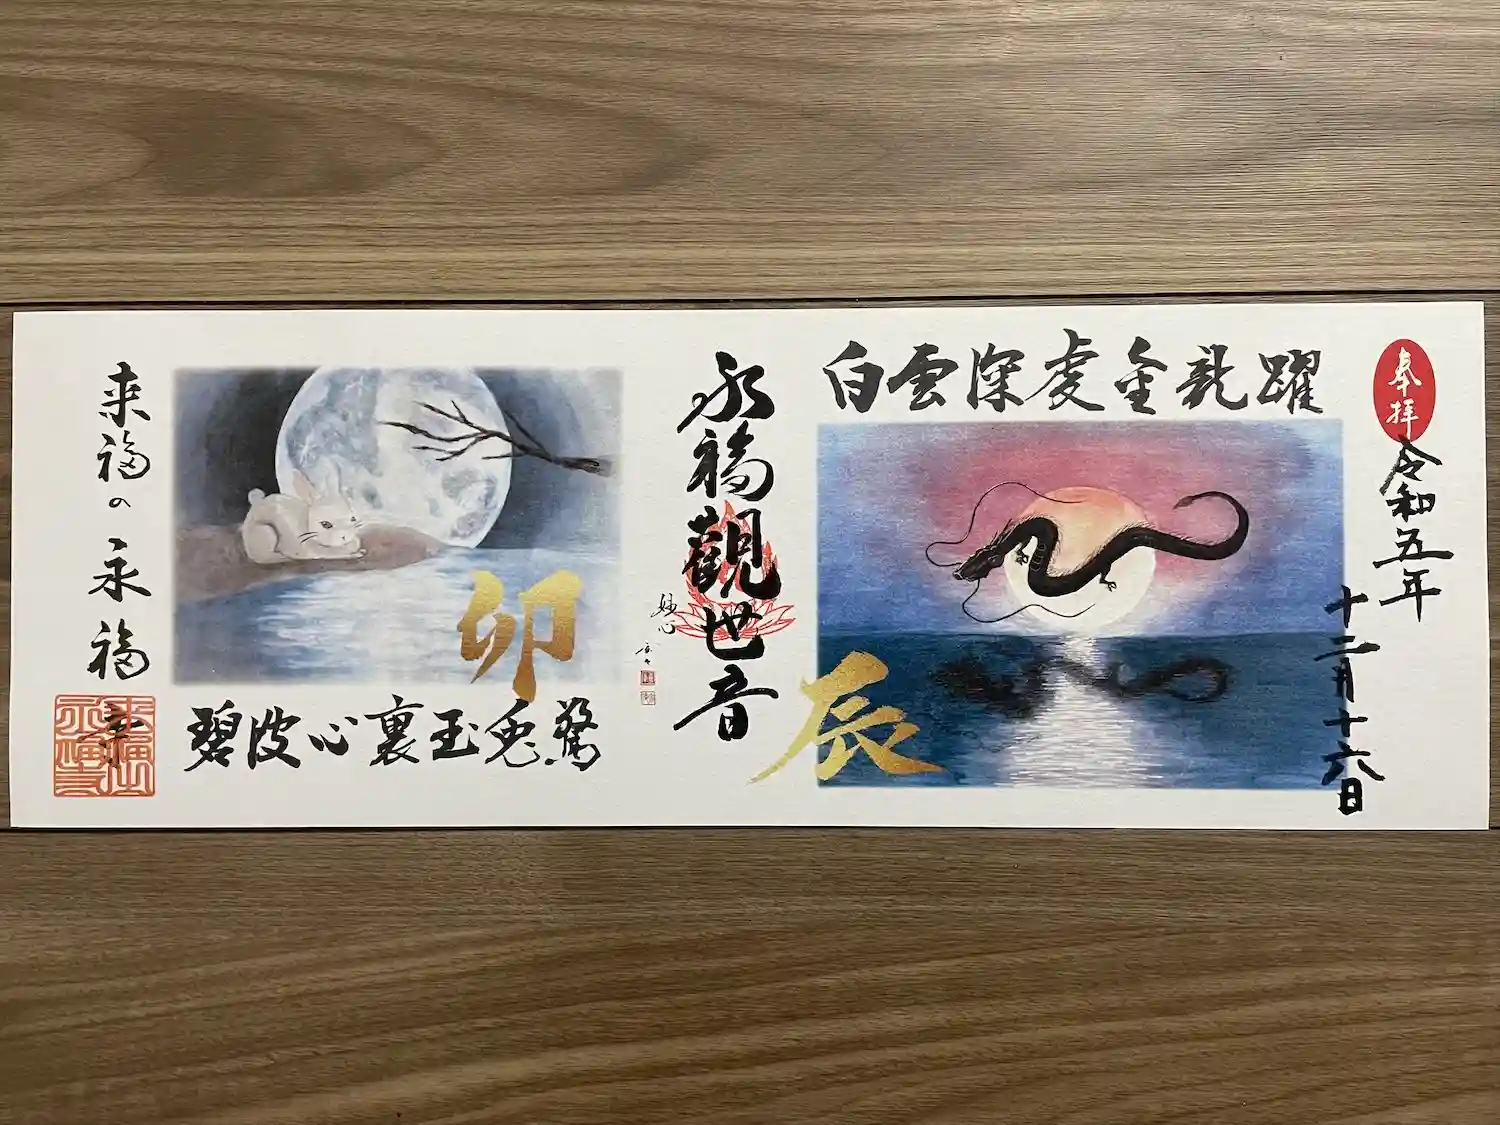 奉拝
令和五年
十二月十六日
白雲深處金龍躍
辰
永福觀世音
妙心
卯
碧波心裏玉兎驚
来福の永福